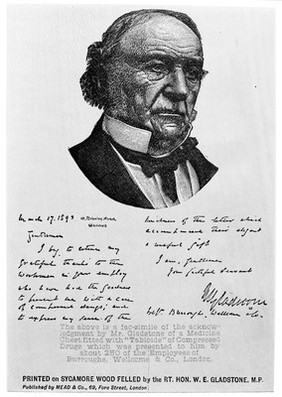 March 17. 1893
Gentlemen
I beg to return my
grateful thanks to the
Workmen in your employ
who have had the goodness
to present me with a case
of compressed drugs; and
to express my sense of the
kindness of the letter which
accompanied their
useful gift
I am, gentlemen
Your faithful servant
WEGladstone
Burroughs, Wellcome & Co.
The above is a fac-simile of the acknow-
ledgment by Mr. Gladstone of a Medicine
Chest fitted with "Tabloids" of Compressed
Drugs which was presented to him by
about 250 of the Employees of
Burroughs, Wellcome & Co., London.
PRINTED ON SYCAMORE WOOD FELLED by the RT. HON. W. E. GLADSTONE. M.P.
Published by MEAD & Co., 69, Fore Street, London